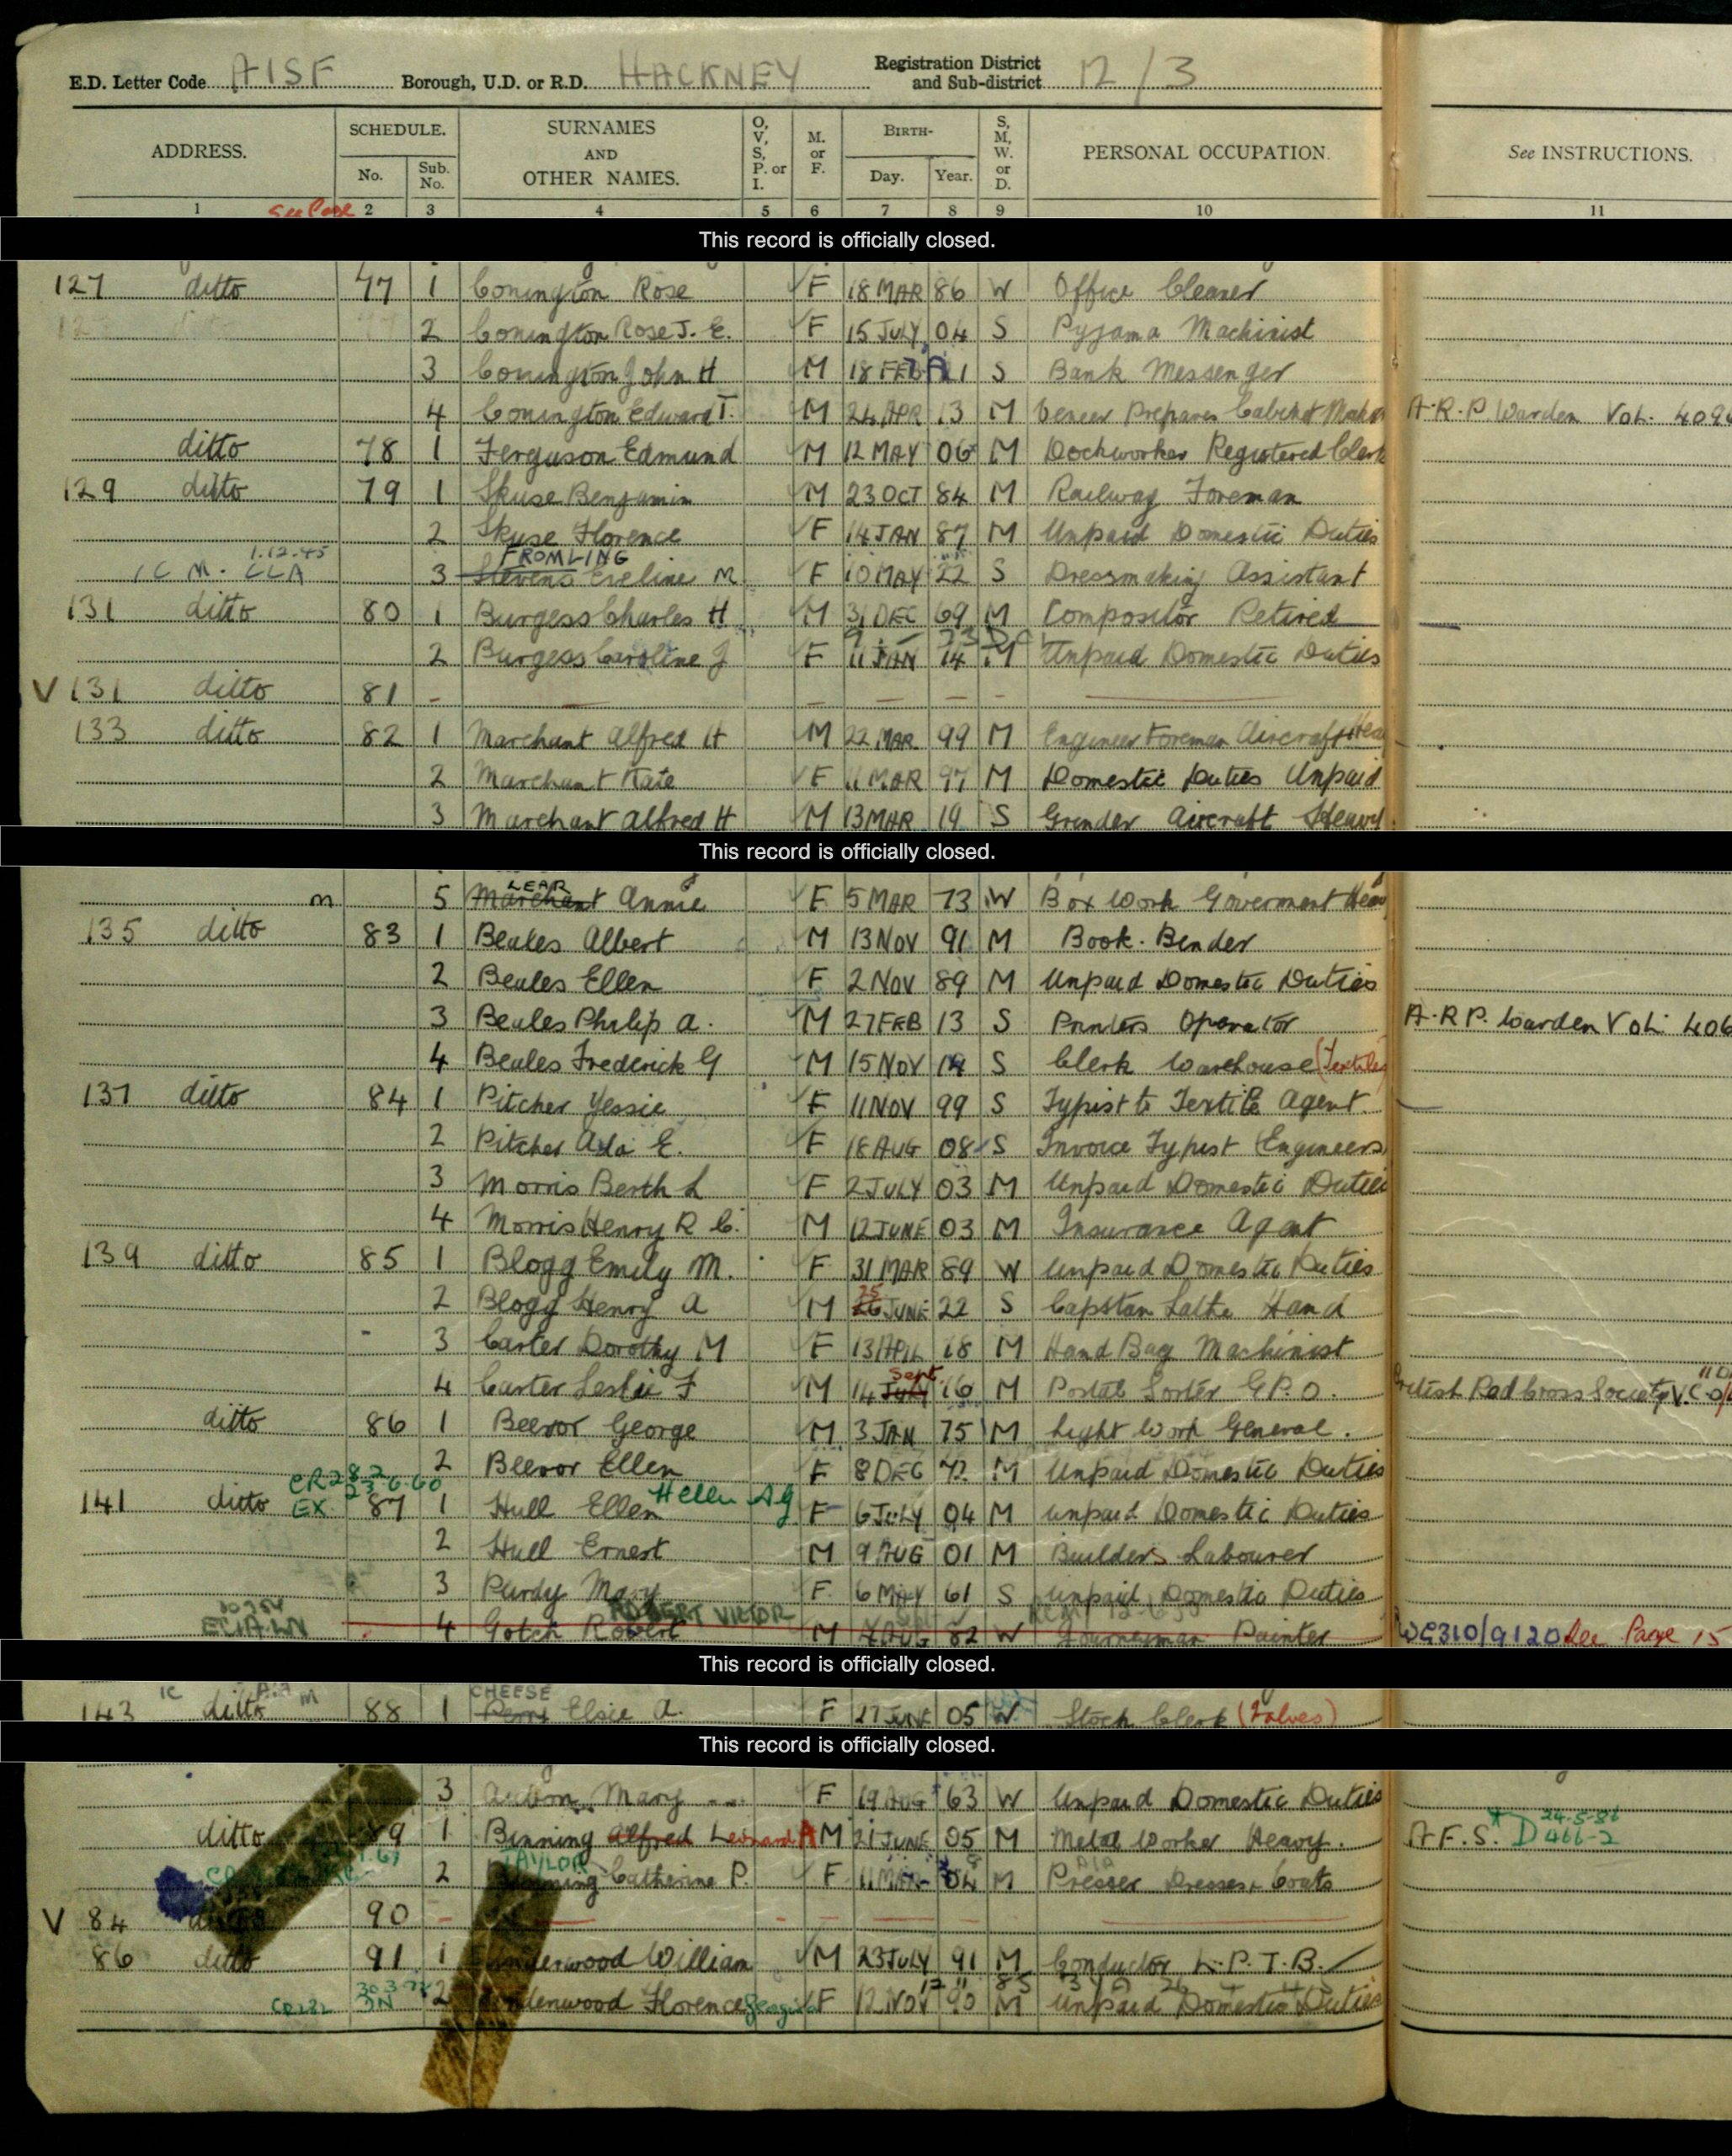 E.D. Letter Code AISF Borough, U.D. or R.D. HACKNEY Registration District and Sub-district 12/3
ADDRESS. SCHEDULE. No. Sub. No. SURNAMES AND OTHER NAMES. O, V, S, P. or I. M. or F. BIRTH- Day. Year. S, M, W. or D. PERSONAL OCCUPATION. See INSTRUCTIONS.
1 See Page 2 3 4 5 6 7 8 9 10 11
This record is officially closed.
127 ditto 77 1 Conington Rose F 18 MAR 86 W Office Cleaner
2 Conington Rose J. E. F 15 JULY 04 S Pyjama Machinist
3 Conington John H M 18 FEB 1 S Bank Messenger
4 Conington Edward T. M 24 APR 13 M Veneer Preparer Cabinet A.R.P. Warden Vol.
ditto 78 1 Ferguson Edmund M 12 MAY 06 M Dockworker Registered Clerk
129 ditto 79 1 Skuse Benjamin M 23 OCT 84 M Railway Foreman
2 Skuse Florence F 14 JAN 87 M Unpaid Domestic Duties
1.12.45 FROMLING
M. LLA 3 Stevens Eveline M F 10 MAY 22 S Dressmaking Assistant
131 ditto 80 1 Burgess Charles H M 31 DEC 69 M Compositor Retired
2 Burgess Caroline J F 11 JAN 74 M Unpaid Domestic Duties
V 131 ditto 81 - - - - - -
133 ditto 82 1 Marchant Alfred H M 22 MAR 99 M Engineer Foreman Aircraft
2 Marchant Kate F 11 MAR 97 M Domestic Duties Unpaid
3 Marchant Alfred H M 13 MAR 19 S Grinder Aircraft Heavy
This record is officially closed.
LEAR
m 5 Marchant Annie F 5 MAR 73 W Box Work Goverment
135 ditto 83 1 Beales Albert M 13 NOV 91 M Book. Binder
2 Beales Ellen F 2 NOV 89 M Unpaid Domestic Duties
3 Beales Philip A. M 27 FEB 13 S Printers Operator A.R.P. Warden Vol. 406
4 Beales Frederick G M 15 NOV 14 S Clerk Warehouse (Textiles)
137 ditto 84 1 Pitcher Jessie F 11 NOV 99 S Typist to Textile Agent.
2 Pitcher Ada E. F 18 AUG 08 S Invoice Typist (Engineers)
3 Morris Berth L F 2 JULY 03 M Unpaid Domestic Duties
4 Morris Henry R C. M 12 JUNE 03 M Insurance Agent
139 ditto 85 1 Blogg Emily M. F 31 MAR 89 W Unpaid Domestic Duties
25
2 Blogg Henry A M 26 JUNE 22 S Capstan Lathe Hand
3 Carter Dorothy M F 13 APIL 18 M Hand Bag Machinist
Sept
4 Carter Leslie F M 14 July 16 M Postal Sorter G.P.O. British Red Cross Society
ditto 86 1 Beevor George M 3 JAN 75 M Light Work General.
2 Beevor Ellen F 8 DEC 72 M Unpaid Domestic Duties
CR282 23.6.60
141 ditto EX 87 1 Hull Ellen Hellen A G F 6 JULY 04 M Unpaid Domestic Duties
2 Hull Ernest M 9 AUG 01 M Builders Labourer
3 Purdy Mary F 6 MAY 61 S Unpaid Domestic Duties
ROBERT VICTOR
4 Gotch Robert M AUG 82 W Journeyman Painter See Page 15
This record is officially closed.
CHEESE
143 ditto 88 1 Perry Elsie A. F 27 JUNE 05 W Stock Clerk (Valves)
This record is officially closed.
3 Mary F 19 AUG 63 W Unpaid Domestic Duties
ditto 89 1 Binning Alfred Leonard A M 21 JUNE 05 M Metal Worker Heavy. A.F.S. D 466-2 24-5-86
TAYLOR
2 Binning Catherine P. F 11 MAR 04 M Presser Dresses & Coats
V 84 ditto 90 - - - - - -
86 ditto 91 1 Underwood William M 23 JULY 91 M Conductor L.P.T.B.
2 Underwood Florence F 12 NOV 90 M Unpaid Domestic Duties